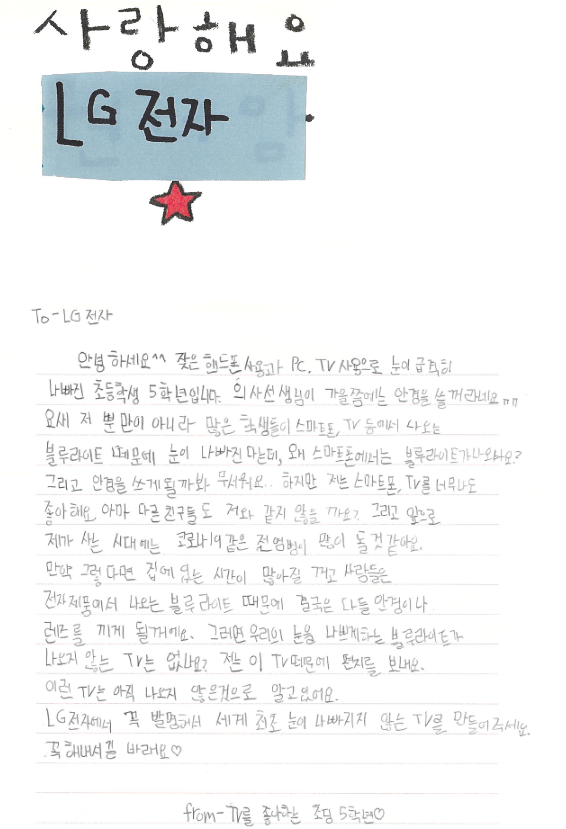 사랑해요
LG 전자
To-LG 전자
안녕하세요^^ 잦은 핸드폰 사용과 PC, TV 사용으로 눈이 급격히
나빠진 초등학생 5학년입니다. 의사선생님이 가을쯤에는 안경을 쓸꺼라네요ㅠㅠ
요새 저 뿐만이 아니라 많은 학생들이 스마트폰, TV 등에서 나오는
블루라이트 때문에 눈이 나빠진다는데, 왜 스마트폰에서는 블루라이트가 나오나요?
그리고 안경을 쓰게 될까봐 무서워요.. 하지만 저는 스마트폰, TV를 너무나도
좋아해요. 아마 다른 친구들도 저와 같지 않을까요? 그리고 앞으로
제가 사는 시대에는 코로나19 같은 전염병이 많이 돌것같아요.
만약 그렇다면 집에 있는 시간이 많아질 꺼고 사람들은
전자제품에서 나오는 블루라이트 때문에 결국은 다들 안경이나
렌즈를 끼게 될거에요. 그러면 우리의 눈을 나쁘게하는 블루라이트가
나오지 않는 TV는 없나요? 저는 이 TV 때문에 편지를 보내요.
이런 TV는 아직 나오지 않은것으로 알고있어요.
LG전자에서 꼭 발명해서 세계 최초 눈이 나빠지지 않는 TV를 만들어주세요.
꼭 해내시길 바래요♡
from-TV를 좋아하는 초딩 5학년♡